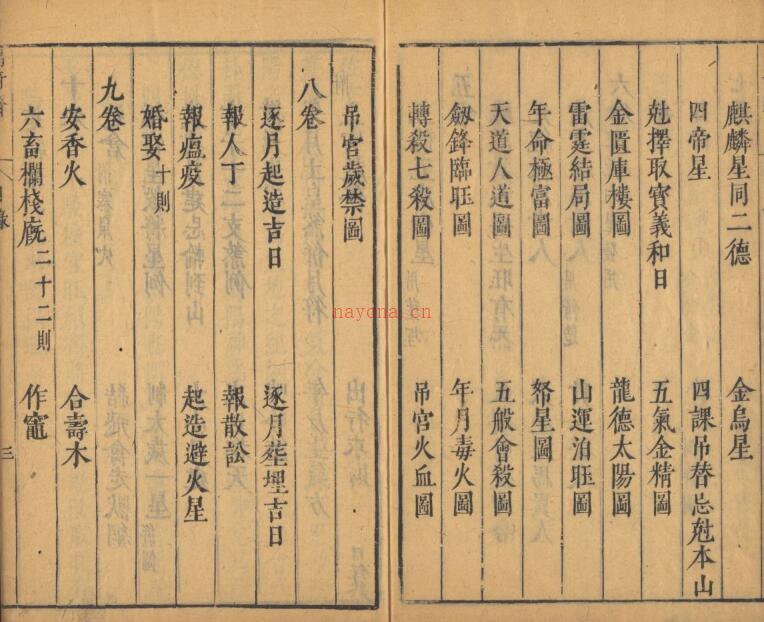 麒麟星同二德 金烏星
四帝星 四課吊替忌尅本山
尅擇取寳義和日 五氣金精圖
金匱庫樓圖 龍德太陽圖
雷霆結局圖 山運泊𭥍圖
年命極富圖 帑星圖
天道人道圖 五般會殺圖
劔鋒臨𭥍圖 年月毒火圖
轉殺七殺圖 吊宫火血圖
吊宫歲禁圖
八卷
逐月起造吉日 逐月𦵏埋吉日
報人丁 報散訟
報瘟疫 起造避火星
婚娶十則
九卷
安香火 合壽木
六畜欄棧廐二十二則 作竈
目錄
三
nayona.cn